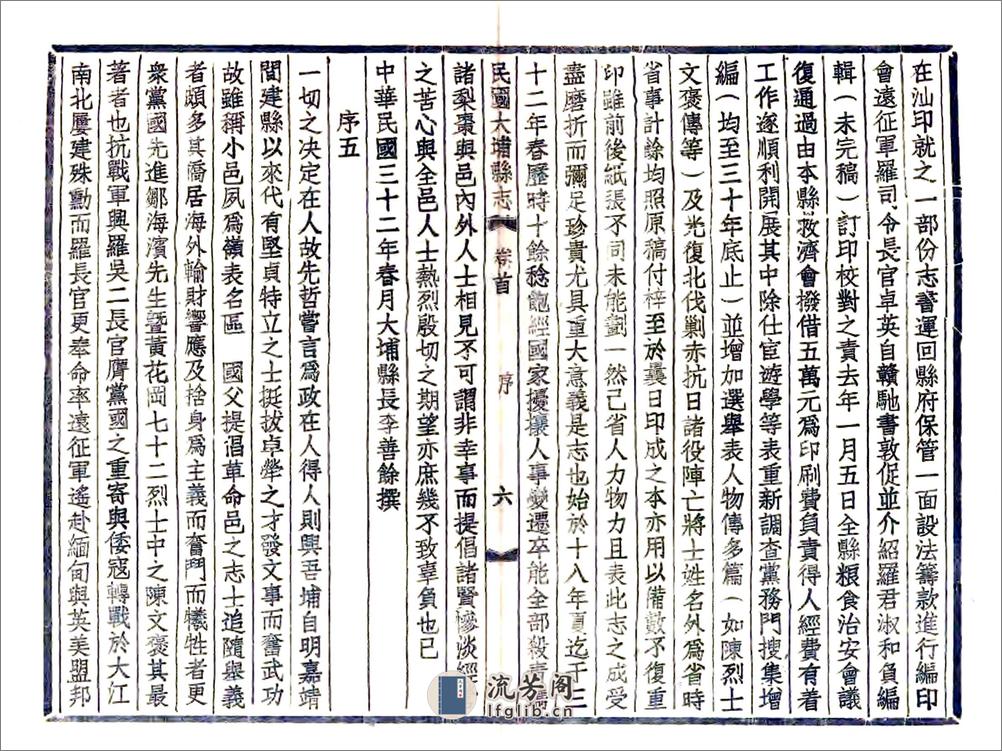 在汕印就之一部份志書運回縣府保管一面設法籌款進行編印
會遠征軍羅司令長官卓英自贛馳書敦促並介紹羅君淑和負編
輯（未完稿）訂印校對之責去年一月五日全縣粮食治安會議
復通過由本縣救濟會撥借五萬元爲印刷費負責得人經費有着
工作遂順利開展其中除仕宦遊學等表重新調查黨務門搜集增
編（均至三十年底止）並增加選舉表人物傳多篇（如陳烈士
文褒傳等）及光復北伐剿赤抗日諸役陣亡將士姓名外爲省時
省事計餘均照原稿付梓至於曩日印成之本亦用以備數不復重
印雖前後紙張不同未能劃一然己省人力物力且表此志之成受
盡磨折而彌足珍貴尤具重大意義是志也始於十八年夏迄于三
十二年春歷時十餘稔飽經國家擾攘人事變遷卒能全部殺青
民國大埔縣志 卷首 序 六
諸梨棗與邑內外人士相見不可謂非幸事而提倡諸賢慘淡經
之苦心與全邑人士熱烈殷切之期望亦庶幾不致辜負也已
中華民國三十二年春月大埔縣長李善餘撰
序五
一切之決定在人故先哲嘗言爲政在人得人則興吾埔自明嘉靖
間建縣以來代有堅貞特立之士挺拔卓犖之才發文事而奮武功
故雖稱小邑夙爲嶺表名區 國父提倡革命邑之志士追隨舉義
者頗多其僑居海外輸財響應及捨身爲主義而奮鬥而犧牲者更
衆黨國先進鄒海濱先生暨黃花岡七十二烈士中之陳文褒其最
著者也抗戰軍興羅吳二長官膺黨國之重寄與倭寇轉戰於大江
南北屢建殊勳而羅長官更奉命率遠征軍遙赴緬甸與英美盟邦
流芳阁
lfglib.cn